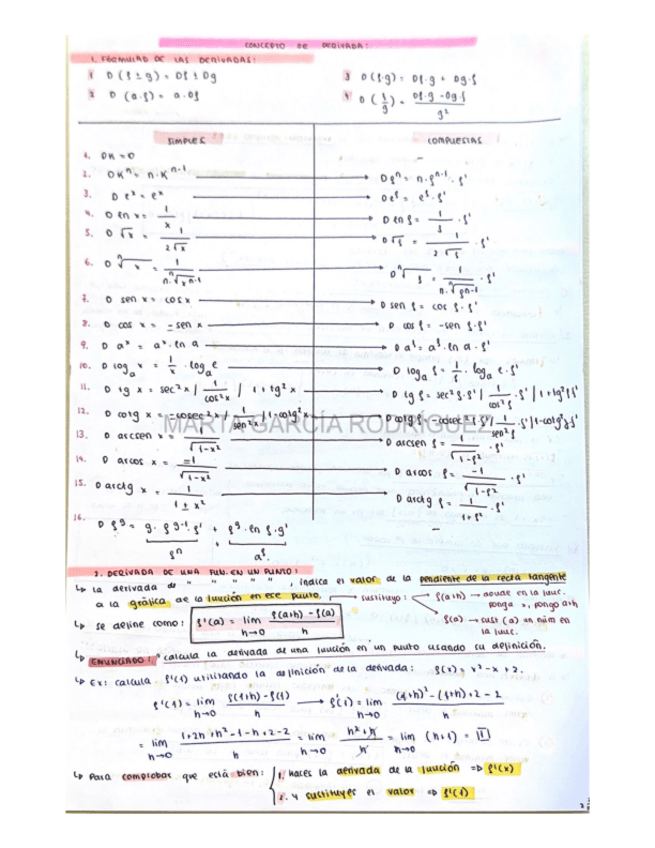 CONCEPTO DE DERIVADA:
1. FÓRMULAS DE LAS DERIVADAS:
1 D (f ± g) = Df ± Dg
3 D (f·g) = Df·g + Dg·f
2 D (a·f) = a·Df
4 D (f/g) = (Df·g - Dg·f) / g²
SIMPLES COMPUESTAS
1. DK = 0 –
2. DK^n = n·K^(n-1) → Df^n = n·f^(n-1)·f'
3. De^x = e^x → De^f = e^f·f'
4. D ln x = 1/x → D ln f = 1/f · f'
5. D √x = 1/(2√x) → D √f = 1/(2√f) · f'
6. D ⁿ√x = 1/(n·ⁿ√x^(n-1)) → D ⁿ√f = 1/(n·ⁿ√f^(n-1)) · f'
7. D sen x = cos x → D sen f = cos f·f'
8. D cos x = -sen x → D cos f = -sen f·f'
9. D a^x = a^x·ln a → D a^f = a^f·ln a·f'
10. D log_a x = 1/x · log_a e → D log_a f = 1/f · log_a e·f'
11. D tg x = sec² x / 1/cos² x / 1 + tg² x → D tg f = sec² f·f' / 1/cos² f · f' / 1 + tg² f·f'
12. D cotg x = -cosec² x / 1/sen² x / 1-cotg² x → D cotg f = -cosec² f·f' / 1/sen² f · f' / 1-cotg² f·f'
MARTA GARCÍA RODRÍGUEZ
13. D arcsen x = 1/√(1-x²) → D arcsen f = 1/√(1-f²) · f'
14. D arcos x = -1/√(1-x²) → D arcos f = -1/√(1-f²) · f'
15. D arctg x = 1/(1±x²) → D arctg f = 1/(1+f²) · f'
16. D f^g = g·f^(g-1)·f' + f^g·ln f·g' –
f^n + a^f
2. DERIVADA DE UNA FUN. EN UN PUNTO:
↳ La derivada de " " " " " , indica el valor de la pendiente de la recta tangente
a la gráfica de la función en ese punto. → sustituyo: f(a+h) → donde en la func.
ponga x, pongo a+h
↳ se define como: f'(a) = lim h→0 (f(a+h) - f(a)) / h
f(a) → sust (a) en
la func.
↳ ENUNCIADO: "calcula la derivada de una función en un punto usando su definición.
↳ Ex: calcula f'(1) utilizando la definición de la derivada: f(x) = x² - x + 2.
f'(1) = lim h→0 (f(1+h) - f(1)) / h → f'(1) = lim h→0 ((1+h)² - (1+h) + 2 - 2) / h
= lim h→0 (1+2h+h²-1-h+2-2) / h = lim h→0 (h²+h) / h = lim h→0 (h+1) = 1
↳ Para comprobar que está bien: 1. haces la derivada de la función ⇒ f'(x)
2. y sustituyes el valor ⇒ f'(1)